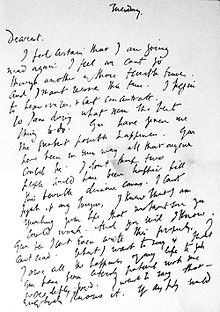 Tuesday.
Dearest,
I feel certain that I am going
mad again. I feel we can't go
through another of those terrible times.
And I shan't recover this time. I begin
to hear voices, & can't concentrate.
So I am doing what seems the best
thing to do. You have given me
the greatest possible happiness. You
have been in every way all that anyone
could be. I don't think two
people could have been happier till
this terrible disease came. I can't
fight it any longer, I know that I am
spoiling your life, that without me you
could work. And you will I know.
You see I can't even write this properly. I
can't read. What I want to say is that
I owe all the happiness of my life to you.
You have been entirely patient with me &
incredibly good. I want to say that—
everybody knows it. If anybody could